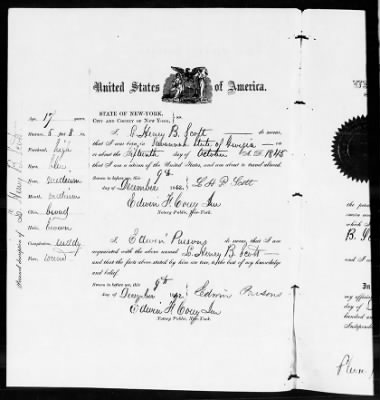 United States of America.
STATE OF NEW-YORK,
CITY AND COUNTY OF NEW YORK, } ss.
I, L. Henry B. Scott do swear,
that I was born in Savannah State of Georgia
on or about the fifteenth day of October A.D. 1845
that I am a citizen of the United States, and am about to travel abroad.
Sworn to before me, this 9th
day of December 1862 } L H B Scott
Edwin F. Corey Jun
Notary Public, New-York.
I, Edwin Parsons do swear, that I am
acquainted with the above named L. Henry B. Scott
and that the facts above stated by him are true, to the best of my knowledge
and belief.
Sworn to before me, this 9th
day of December 1862 } Edwin Parsons
Edwin F. Corey Jun
Notary Public, New-York.
Personal description of L. Henry B. Scott
Age, 17 years.
Stature, 5 feet 8 in.
Forehead, high
Eyes, blue
Nose, medium
Mouth, medium
Chin, round
Hair, brown
Complexion, ruddy
Face, round